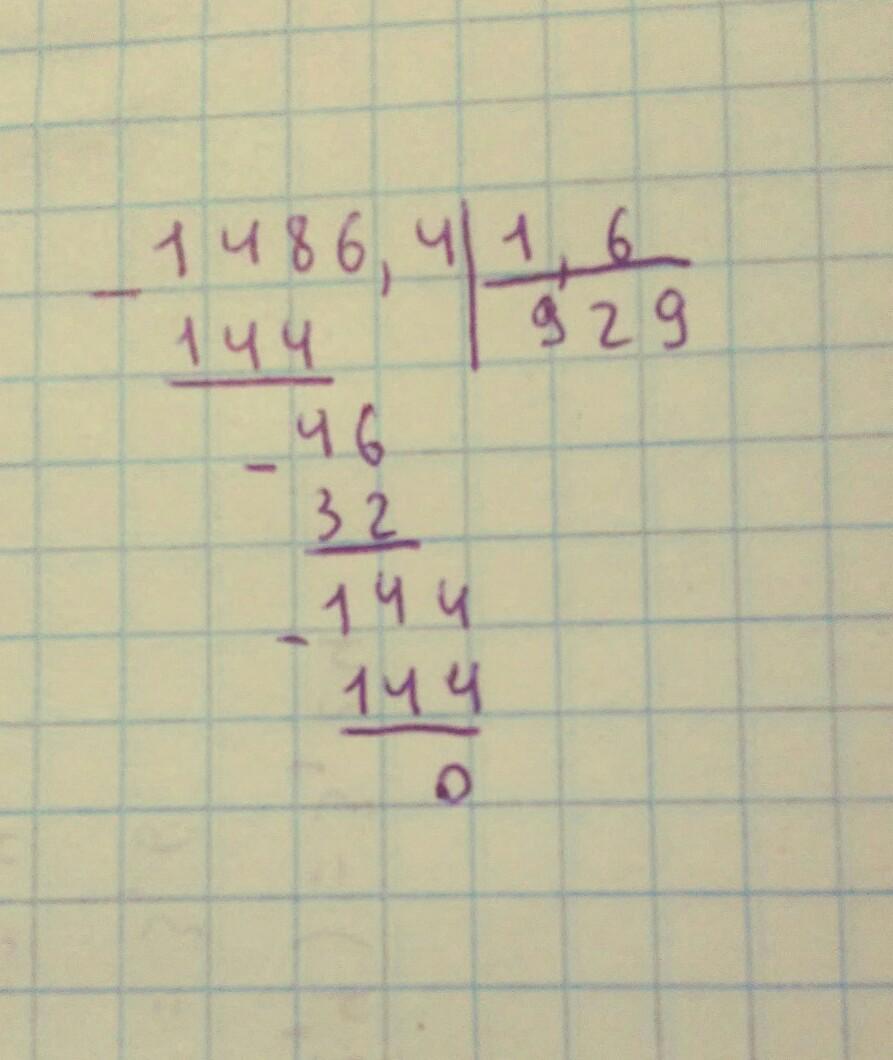 1486,4 1,6
144 929
46
32
144
144
0